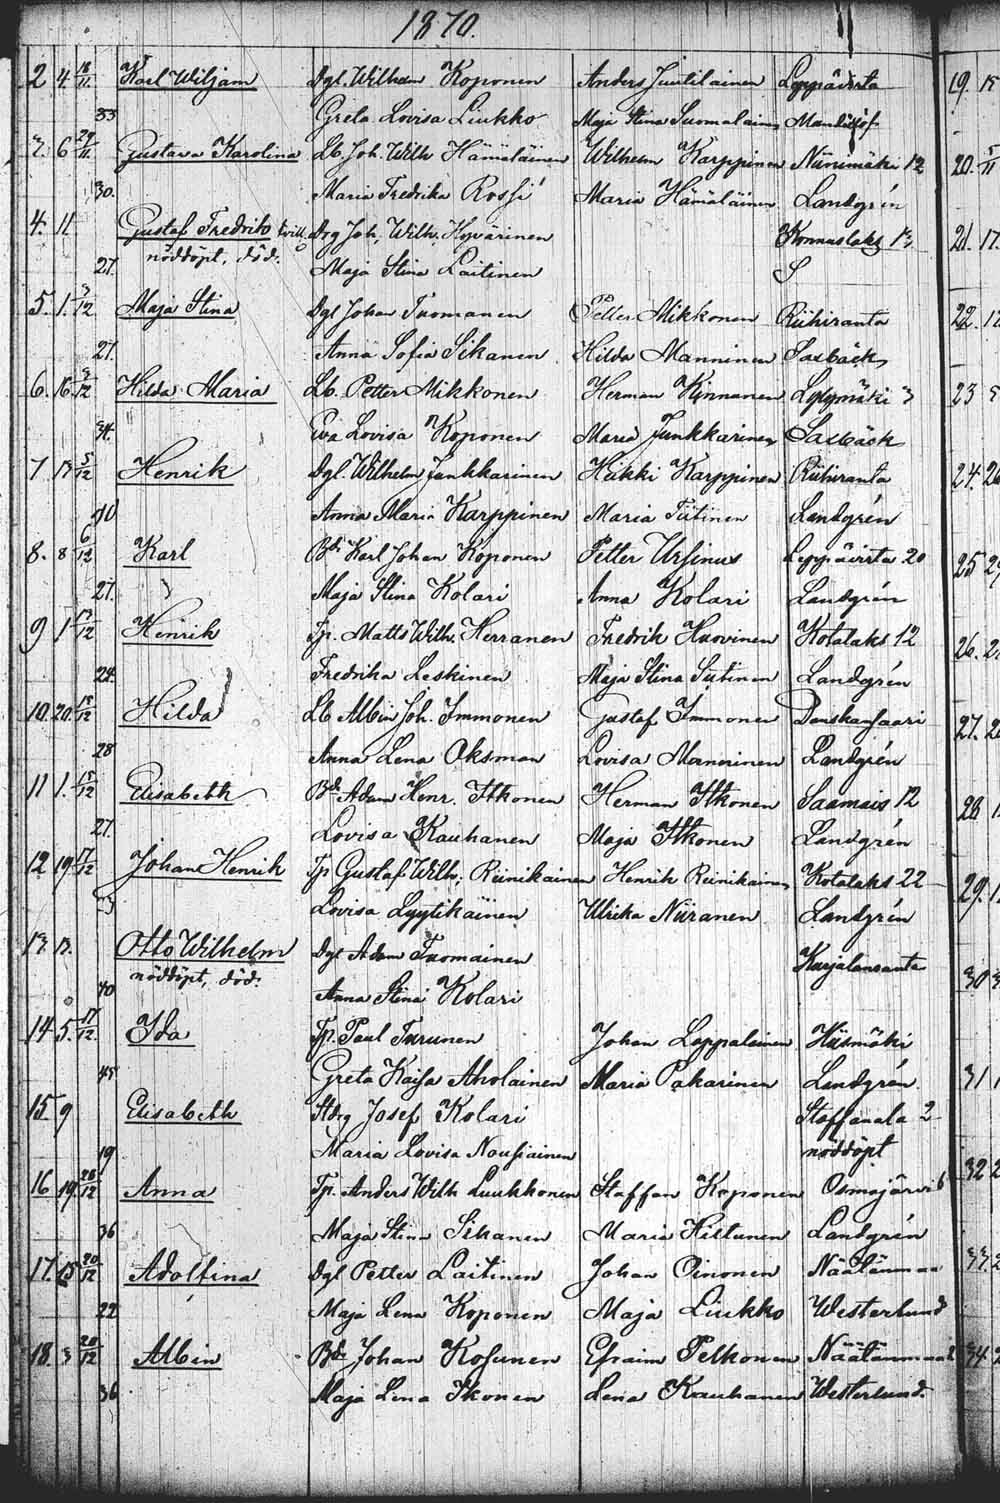 1870.
2 4 18/11 Karl Wiljam Dgl. Wilhelm Koponen Anders Juutilainen Leppävirta
33 Greta Lovisa Liukko Maja Stina Suomalain
3. 6 29/11 Gustava Karolina Lb. Joh. Wilh Hämäläinen Wilhelm Karppinen Niinimäki 12
30. Maria Fredrika Rossi Maria Hämäläinen Landgrén
4. 11 Gustaf Fredrik Drg Joh. Wilh. Hyvärinen Konnuslaks 13
nöddöpt, död.
27. Maja Stina Laitinen S
5. 1. 3/12 Maja Stina Dgl Johan Tuomanen Petter Mikkonen Riihiranta
27. Anna Sofia Sikanen Hilda Manninen Saxbäck
6. 16 3/12 Hilda Maria Lb. Petter Mikkonen Herman Kinnunen
34. Eva Lovisa Koponen Maria Junkkarinen Saxbäck
7 13 5/12 Henrik Dgl. Wilhelm Junkkarinen Heikki Karppinen Riihiranta
40 Anna Maria Karppinen Maria Tiitinen Landgrén
8. 8 6/12 Karl Bd. Karl Johan Koponen Petter Ursinus Leppävirta 20
27. Maja Stina Kolari Anna Kolari Landgrén
9 1 13/12 Henrik Tp. Matts Wilh. Herranen Fredrik Huovinen Kotalaks 12
24. Fredrika Leskinen Maja Stina Sutinen Landgrén
10. 20. 15/12 Hilda Lb Albin Joh. Immonen Gustaf Immonen
28 Anna Lena Oksman Lovisa Landgrén
11 1. 15/12 Elisabeth Bd. Adam Henr. Itkonen Herman Itkonen Saamais 12
27. Lovisa Kauhanen Maja Itkonen Landgrén
12 19 17/12 Johan Henrik Tp Gustaf Wilh. Reinikainen Henrik Reinikainen Kotalaks 22
Lovisa Lyytikäinen Ulrika Niiranen Landgrén
13. 13. Otto Wilhelm Dgl Adam Tuomainen Karjalansanta
nöddöpt, död.
40 Anna Stina Kolari
14 5. 17/12 Ida Tp. Paul Turunen Johan Lappalainen Hiismäki
45 Greta Kaisa Aholainen Maria Pakarinen Landgrén
15 9 Elisabeth Josef Kolari Staffanala 2
19 Maria Lovisa Nousiainen nöddöpt
16 19 28/12 Anna Tp. Anders Wilh Luukkonen Staffan Koponen Osmajärvi 6
36 Maja Stina Sikanen Maria Hiltunen Landgrén
17. 15 20/12 Adolfina Dgl Petter Laitinen Johan Oinonen Näätänmaa
22 Maja Lena Koponen Maja Liukko Westerlund
18. 3 20/12 Albin Bd. Johan Kosunen Efraim Pelkonen Näätänmaa 2
36 Maja Lena Ikonen Lena Kauhanen Westerlund